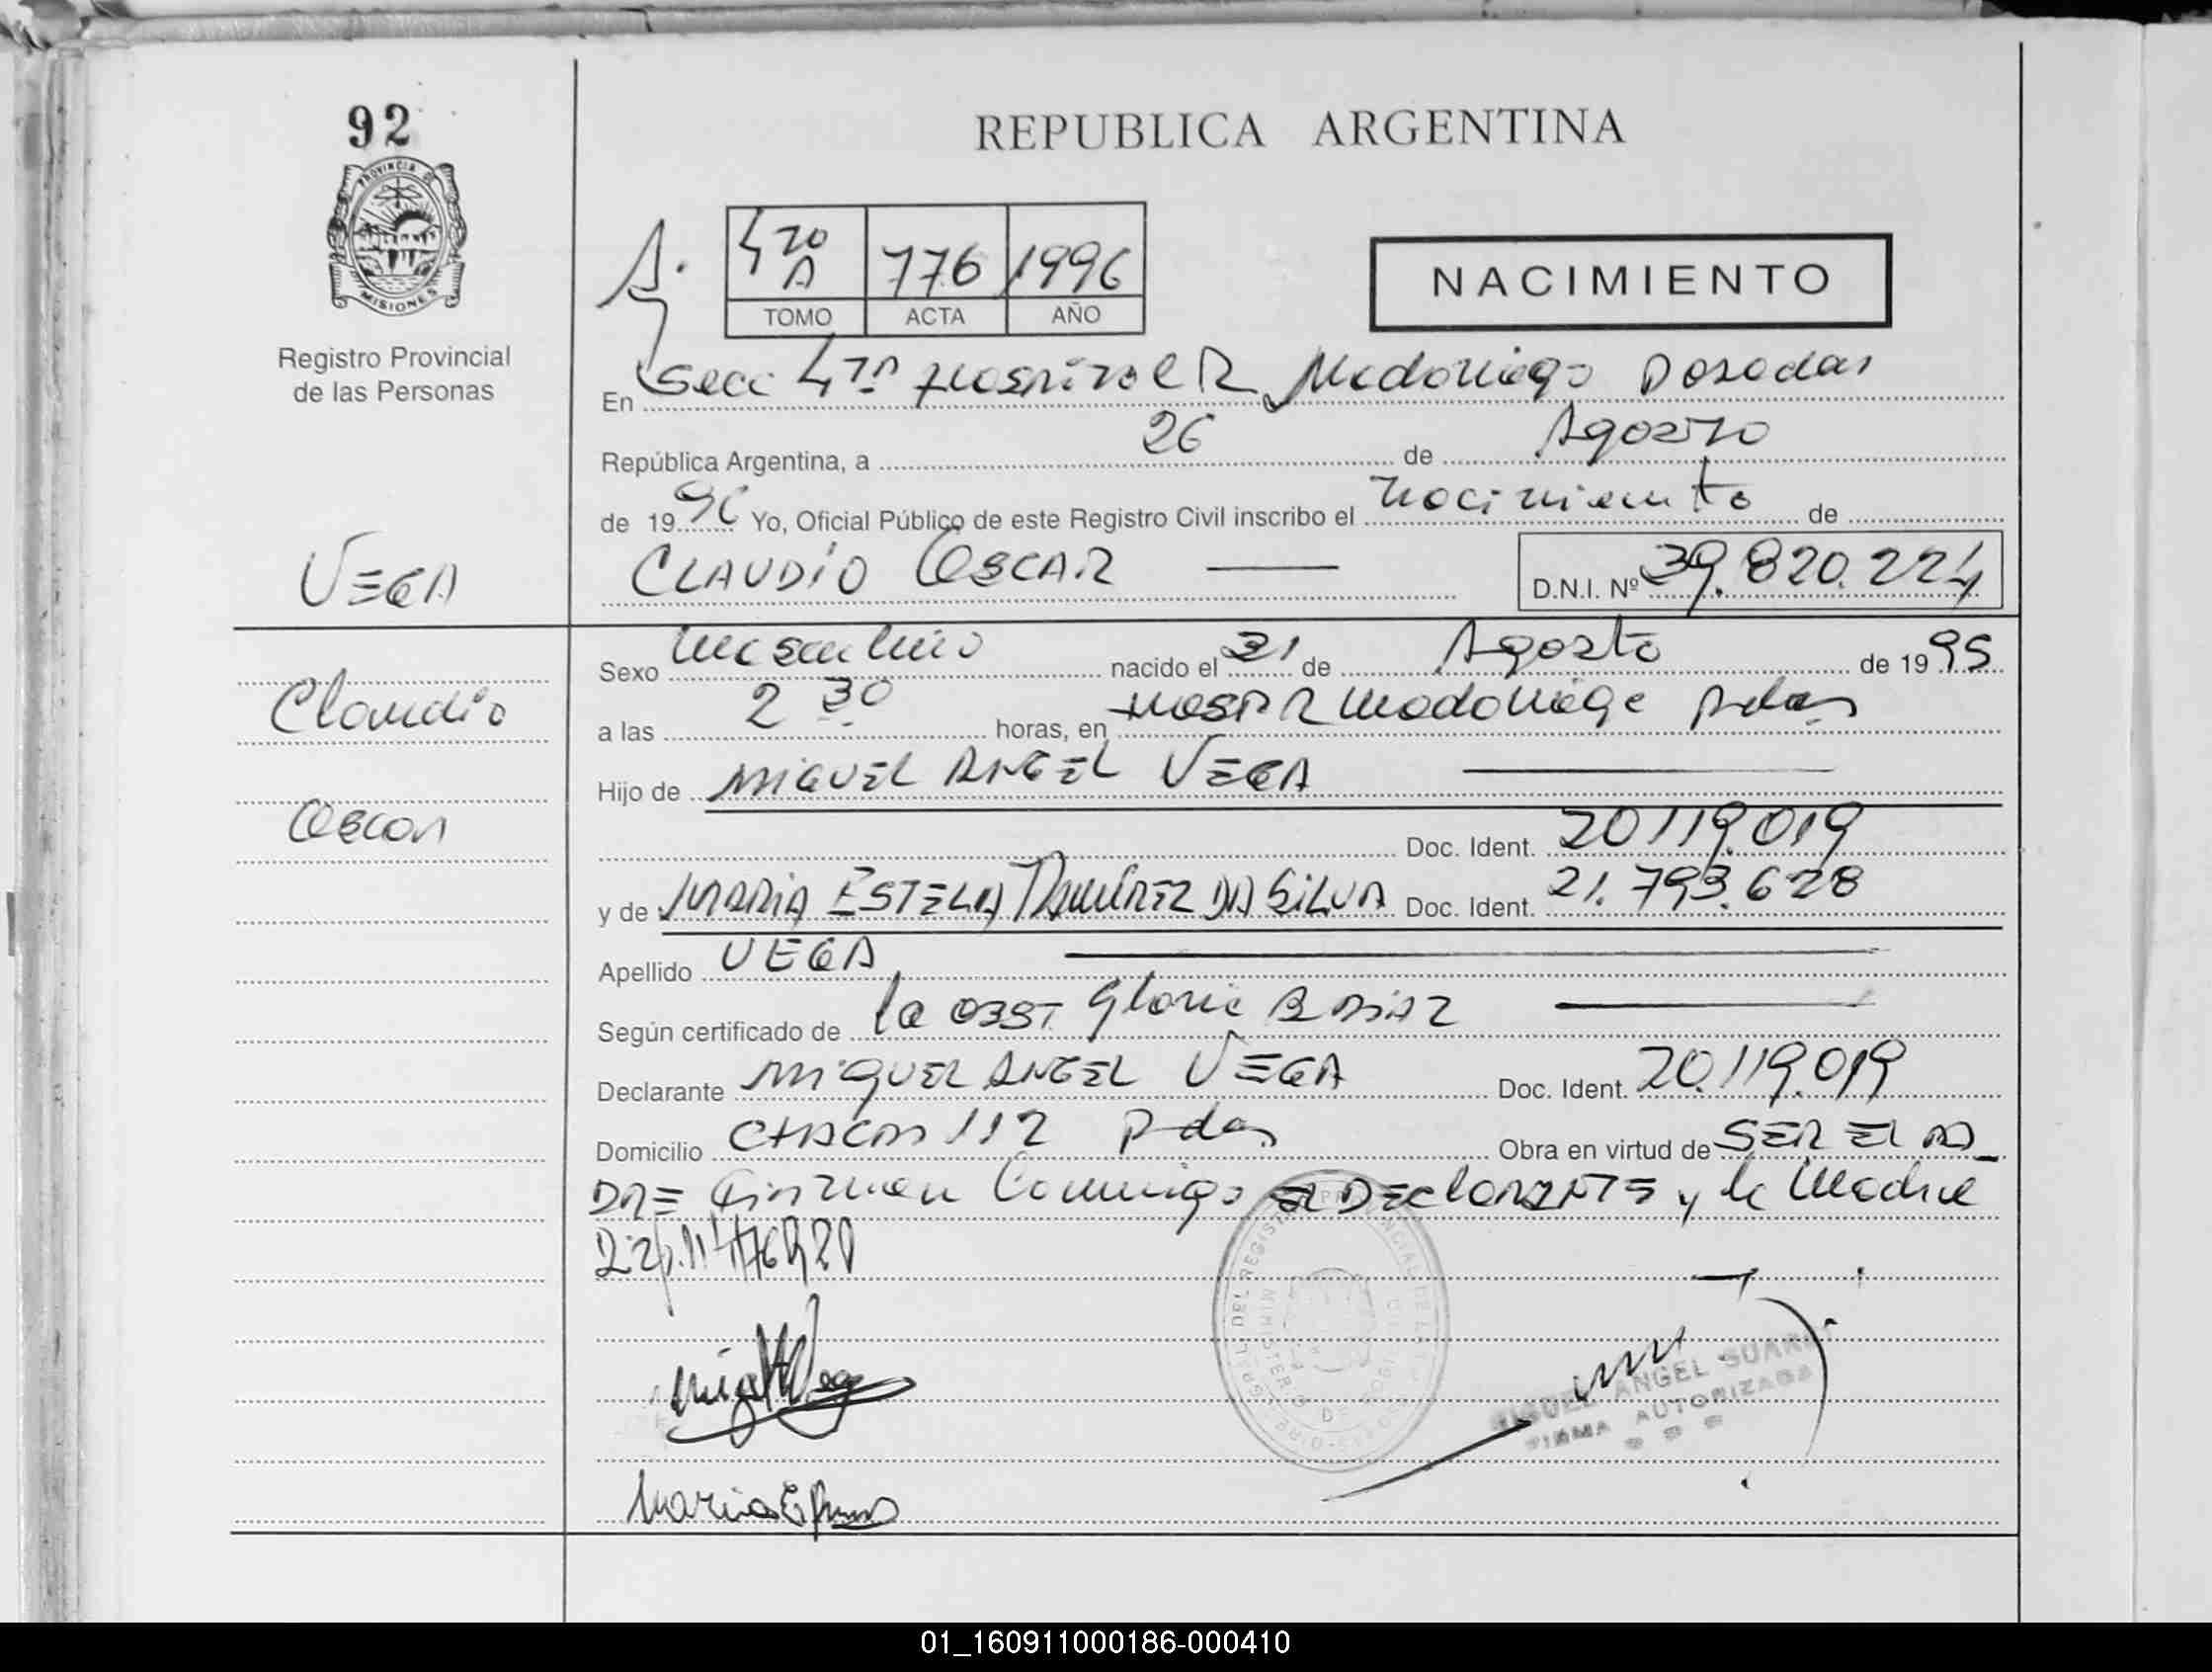 92
PROVINCIA DE
MISIONES
Registro Provincial
de las Personas
REPUBLICA ARGENTINA
4to A 776 1996
TOMO ACTA AÑO
NACIMIENTO
En Secc 4ta Hospital R Madariaga Posadas
República Argentina, a 26 de Agosto
de 1996 Yo, Oficial Público de este Registro Civil inscribo el nacimiento de
VEGA
CLAUDIO OSCAR
D.N.I. Nº 39.820.224
Claudio
Oscar
Sexo Masculino nacido el 31 de Agosto de 1995
a las 2 30 horas, en HOSP R Madariaga Pdas
Hijo de MIGUEL ANGEL VEGA
Doc. Ident. 20119.019
y de MARIA ESTELA RAMIREZ DA SILVA Doc. Ident. 21.793.628
Apellido VEGA
Según certificado de la OBST Gloria B DIAZ
Declarante MIGUEL ANGEL VEGA Doc. Ident. 20.119.019
Domicilio 112 Pdas Obra en virtud de SER EL PA
DRE Firman Conmigo EL DEClARANTE y la Madre
MIGUEL ANGEL
FIRMA AUTORIZADA
01_160911000186-000410